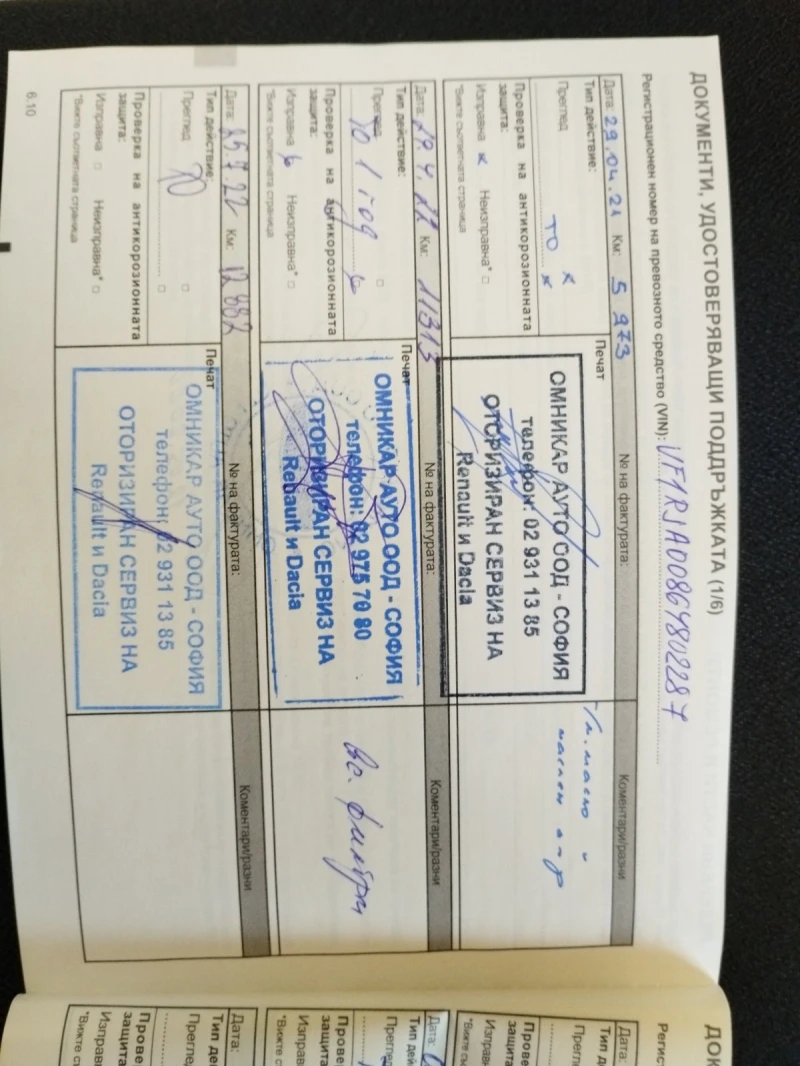 ДОКУМЕНТИ, УДОСТОВЕРЯВАЩИ ПОДДРЪЖКАТА (1/6)
Регистрационен номер на превозното средство (VIN): VF1RJA00864802287
Дата: 29.04.21 Км: 5 973
Тип действие:
Преглед
ТО
Проверка на антикорозионната защита:
Изправна Неизправна*
*Вижте съответната страница
Печат
№ на фактурата:
ОМНИКАР АУТО ООД - СОФИЯ
телефон: 02 931 13 85
ОТОРИЗИРАН СЕРВИЗ НА
Renault и Dacia
Коментари/разни
масло и
маслен
Дата: 29.4.22 Км: 11313
Тип действие:
Преглед
Проверка на антикорозионната защита:
Изправна Неизправна*
*Вижте съответната страница
Печат
№ на фактурата:
ОМНИКАР АУТО ООД - СОФИЯ
телефон: 02 975 70 80
ОТОРИЗИРАН СЕРВИЗ НА
Renault и Dacia
Коментари/разни
Вс. филтри
Дата: 25.7.22 Км: 12 882
Тип действие:
Преглед
ТО
Проверка на антикорозионната защита:
Изправна Неизправна*
*Вижте съответната страница
Печат
№ на фактурата:
ОМНИКАР АУТО ООД - СОФИЯ
телефон: 02 931 13 85
ОТОРИЗИРАН СЕРВИЗ НА
Renault и Dacia
Коментари/разни
6.10